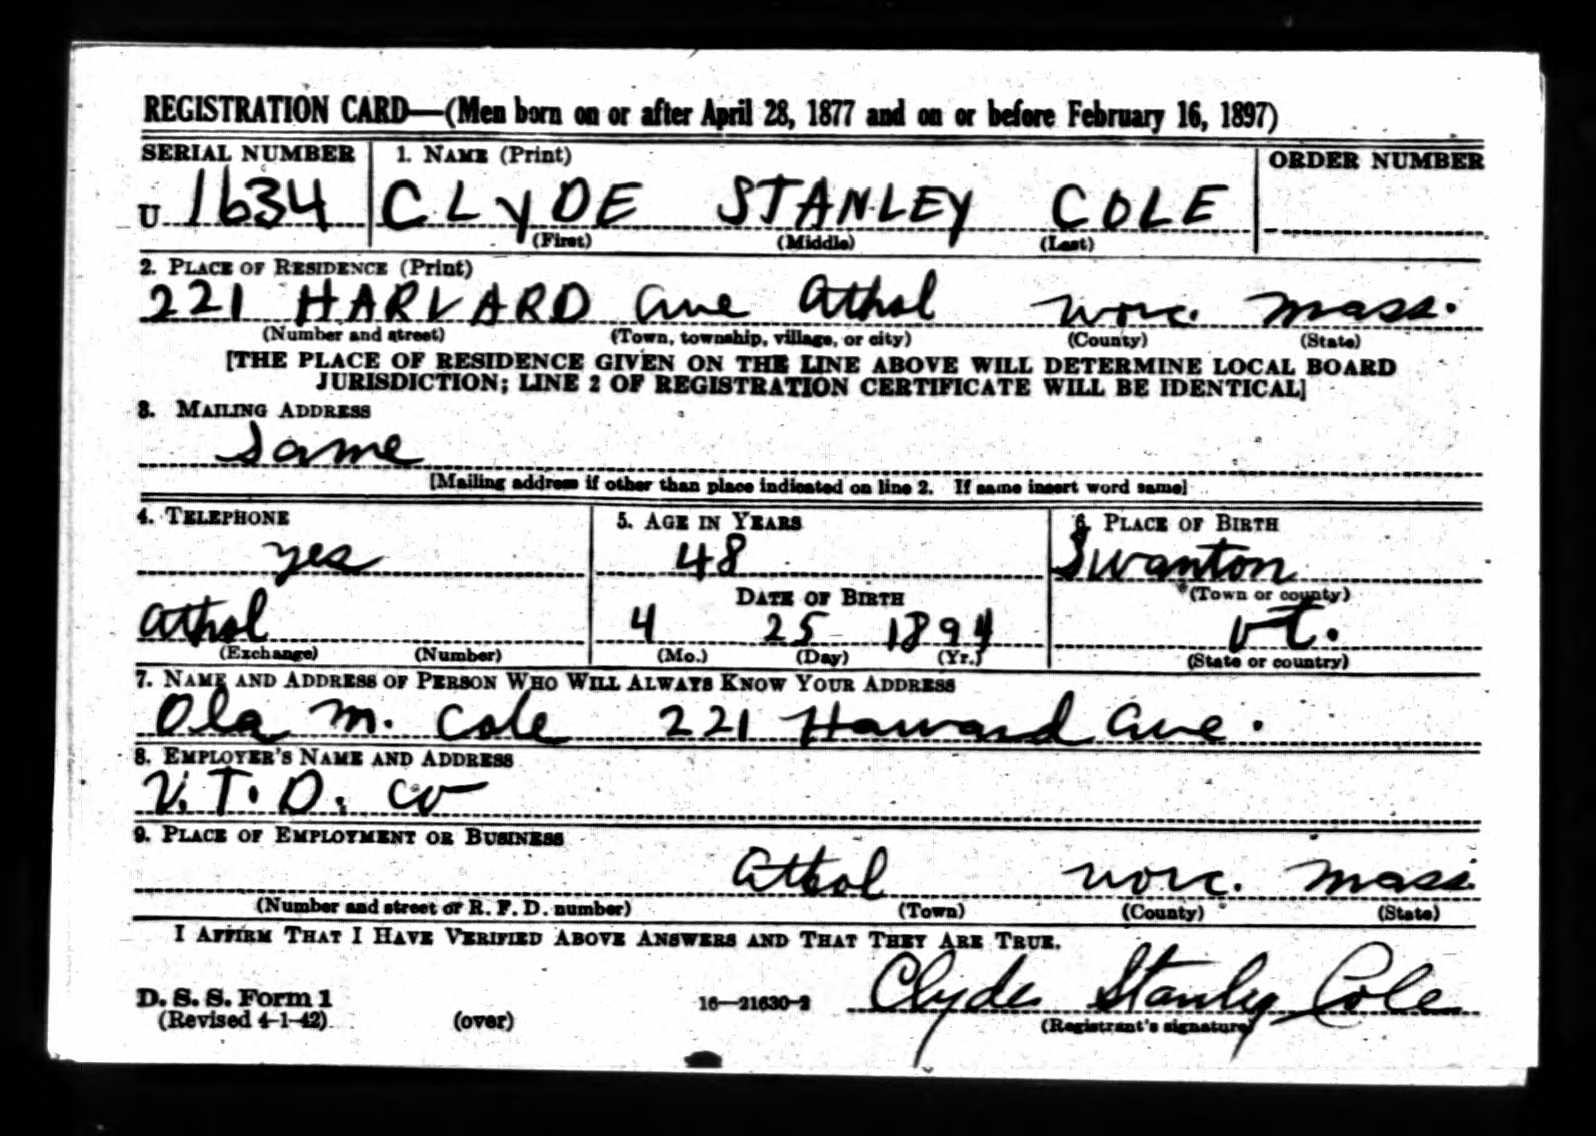 REGISTRATION CARD—(Men born on or after April 28, 1877 and on or before February 16, 1897)
SERIAL NUMBER 1. NAME (Print) ORDER NUMBER
U 1634 CLYDE STANLEY COLE
(First) (Middle) (Last)
2. PLACE OF RESIDENCE (Print)
221 HARVARD Ave Athol Worc. Mass.
(Number and street) (Town, township, village, or city) (County) (State)
[THE PLACE OF RESIDENCE GIVEN ON THE LINE ABOVE WILL DETERMINE LOCAL BOARD
JURISDICTION; LINE 2 OF REGISTRATION CERTIFICATE WILL BE IDENTICAL]
3. MAILING ADDRESS
Same
[Mailing address if other than place indicated on line 2. If same insert word same]
4. TELEPHONE 5. AGE IN YEARS 6. PLACE OF BIRTH
yes 48 Swanton
DATE OF BIRTH (Town or county)
Athol 4 25 1894 Vt.
(Exchange) (Number) (Mo.) (Day) (Yr.) (State or country)
7. NAME AND ADDRESS OF PERSON WHO WILL ALWAYS KNOW YOUR ADDRESS
Ola M. Cole 221 Harvard Ave.
8. EMPLOYER'S NAME AND ADDRESS
V.T.D. Co
9. PLACE OF EMPLOYMENT OR BUSINESS
Athol Worc. Mass
(Number and street or R. F. D. number) (Town) (County) (State)
I AFFIRM THAT I HAVE VERIFIED ABOVE ANSWERS AND THAT THEY ARE TRUE.
D. S. S. Form 1 16—21630-2 Clyde Stanley Cole
(Revised 4-1-42) (over) (Registrant's signature)